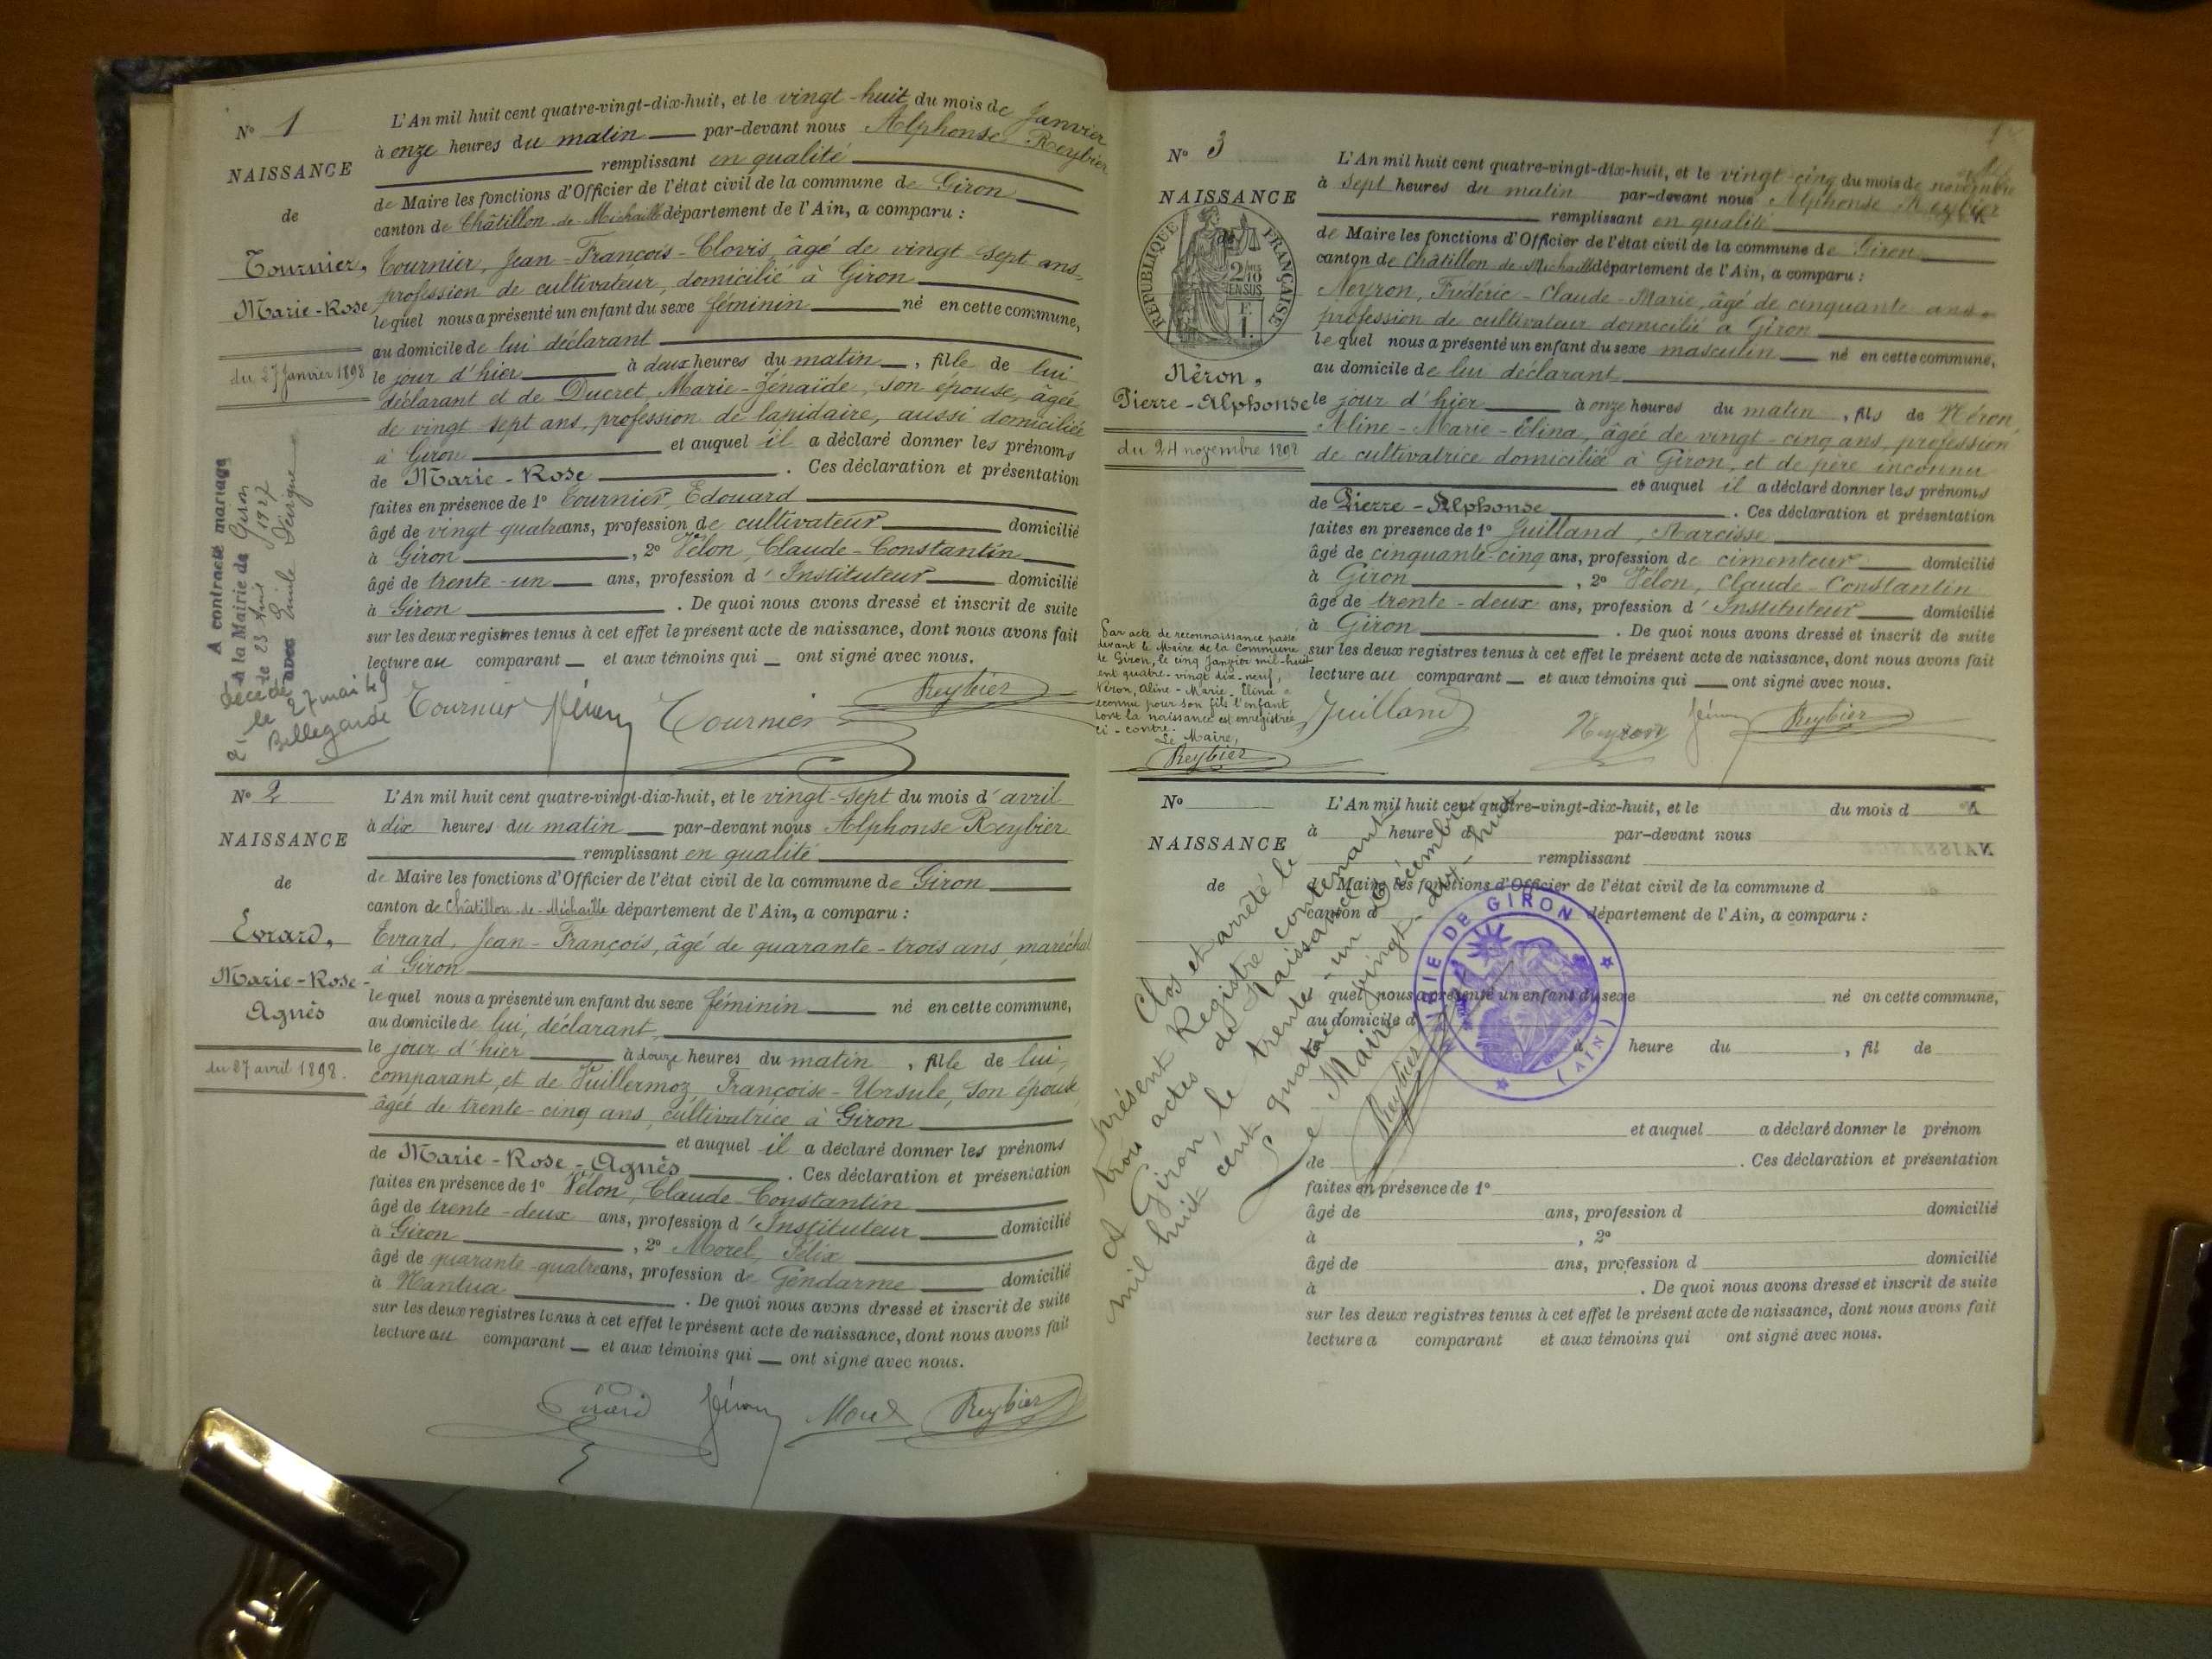 N° 1
NAISSANCE
de
Tournier,
Marie-Rose
du 27 Janvier 1898
A contracté mariage
à la Mairie de Giron
le 23
avec Emile
Décédée
le 27 mai 49
Bellegarde
L'An mil huit cent quatre-vingt-dix-huit, et le vingt-huit du mois de Janvier
à onze heures du matin par-devant nous Alphonse Reybier
remplissant en qualité
de Maire les fonctions d'Officier de l'état civil de la commune de Giron
canton de Châtillon-de-Michaille département de l'Ain, a comparu :
Tournier, Jean-François-Clovis, âgé de vingt sept ans,
profession de cultivateur, domicilié à Giron
lequel nous a présenté un enfant du sexe féminin né en cette commune,
au domicile de lui déclarant
le jour d'hier à deux heures du matin, fille de lui
déclarant et de Ducret, Marie-Zénaïde, son épouse, âgée
de vingt-sept ans, profession de lapidaire, aussi domiciliée
à Giron et auquel il a déclaré donner les prénoms
de Marie-Rose. Ces déclaration et présentation
faites en présence de 1° Tournier, Edouard
âgé de vingt quatre ans, profession de cultivateur domicilié
à Giron, 2° Vélon, Claude-Constantin
âgé de trente-un ans, profession d'Instituteur domicilié
à Giron. De quoi nous avons dressé et inscrit de suite
sur les deux registres tenus à cet effet le présent acte de naissance, dont nous avons fait
lecture au comparant et aux témoins qui ont signé avec nous.
Reybier
Tournier Tournier
N° 2
NAISSANCE
de
Evrard,
Marie-Rose-
Agnès
du 27 avril 1898.
L'An mil huit cent quatre-vingt-dix-huit, et le vingt-sept du mois d'avril
à dix heures du matin par-devant nous Alphonse Reybier
remplissant en qualité
de Maire les fonctions d'Officier de l'état civil de la commune de Giron
canton de Châtillon-de-Michaille département de l'Ain, a comparu :
Evrard, Jean-François, âgé de quarante-trois ans, maréchal
à Giron
lequel nous a présenté un enfant du sexe féminin né en cette commune,
au domicile de lui, déclarant,
le jour d'hier à douze heures du matin, fille de lui,
comparant, et de Vuillermoz, Françoise-Ursule, son épouse,
âgée de trente-cinq ans, cultivatrice à Giron
et auquel il a déclaré donner les prénoms
de Marie-Rose-Agnès. Ces déclaration et présentation
faites en présence de 1° Vélon, Claude Constantin
âgé de trente-deux ans, profession d'Instituteur domicilié
à Giron, 2° Morel, Félix
âgé de quarante-quatre ans, profession de Gendarme domicilié
à Nantua. De quoi nous avons dressé et inscrit de suite
sur les deux registres tenus à cet effet le présent acte de naissance, dont nous avons fait
lecture au comparant et aux témoins qui ont signé avec nous.
Evrard Morel Reybier
N° 3
NAISSANCE
de
RÉPUBLIQUE FRANÇAISE
Néron,
Pierre-Alphonse
du 24 novembre 1898
Par acte de reconnaissance passé
devant le Maire de la Commune
de Giron, le cinq Janvier mil-huit
cent quatre-vingt dix-neuf,
Néron, Aline-Marie-Elina a
reconnu pour son fils l'enfant
dont la naissance est enregistrée
ci-contre.
Le Maire,
Reybier
L'An mil huit cent quatre-vingt-dix-huit, et le vingt-cinq du mois de novembre
à sept heures du matin par-devant nous Alphonse Reybier
remplissant en qualité
de Maire les fonctions d'Officier de l'état civil de la commune de Giron
canton de Châtillon-de-Michaille département de l'Ain, a comparu :
Neyron, Frédéric-Claude-Marie, âgé de cinquante ans
profession de cultivateur domicilié à Giron
lequel nous a présenté un enfant du sexe masculin né en cette commune,
au domicile de lui déclarant
le jour d'hier à onze heures du matin, fils de Néron,
Aline-Marie-Elina, âgée de vingt-cinq ans, profession
de cultivatrice domiciliée à Giron, et de père inconnu
et auquel il a déclaré donner les prénoms
de Pierre-Alphonse. Ces déclaration et présentation
faites en presence de 1° Juilland, Narcisse
âgé de cinquante-cinq ans, profession de cimenteur domicilié
à Giron, 2° Vélon, Claude-Constantin
âgé de trente-deux ans, profession d'Instituteur domicilié
à Giron. De quoi nous avons dressé et inscrit de suite
sur les deux registres tenus à cet effet le présent acte de naissance, dont nous avons fait
lecture au comparant et aux témoins qui ont signé avec nous.
Juilland Neyron Reybier
N°
NAISSANCE
de
L'An mil huit cent quatre-vingt-dix-huit, et le du mois d
à heure d par-devant nous
remplissant
d Maire les fonctions d'Officier de l'état civil de la commune d
canton d département de l'Ain, a comparu :
quel nous a présenté un enfant du sexe né en cette commune,
au domicile d
à heure du , fil de
et auquel a déclaré donner le prénom
de . Ces déclaration et présentation
faites en présence de 1°
âgé de ans, profession d domicilié
à , 2°
âgé de ans, profession d domicilié
à . De quoi nous avons dressé et inscrit de suite
sur les deux registres tenus à cet effet le présent acte de naissance, dont nous avons fait
lecture a comparant et aux témoins qui ont signé avec nous.
Clos et arrêté le
présent Registre contenant
trois actes de Naissance
A Giron, le trente-un Décembre
mil huit cent quatre-vingt-dix-huit
Le Maire
Reybier
MAIRIE DE GIRON
(AIN)